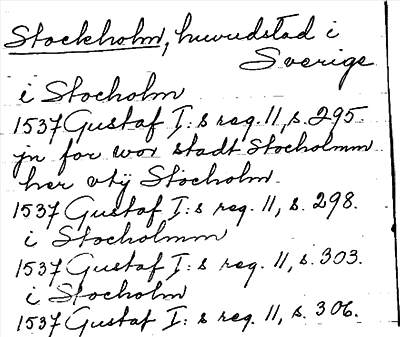 Stockholm, huvudstad i
Sverige
i Stocholm
1537 Gustaf I:s reg. 11, s. 295.
jn for wor stadt Stocholmm
her vtij Stocholm.
1537 Gustaf I:s reg. 11, s. 298.
i Stocholmm
1537 Gustaf I:s reg. 11, s. 303.
i Stocholm
1537 Gustaf I:s reg. 11, s. 306.